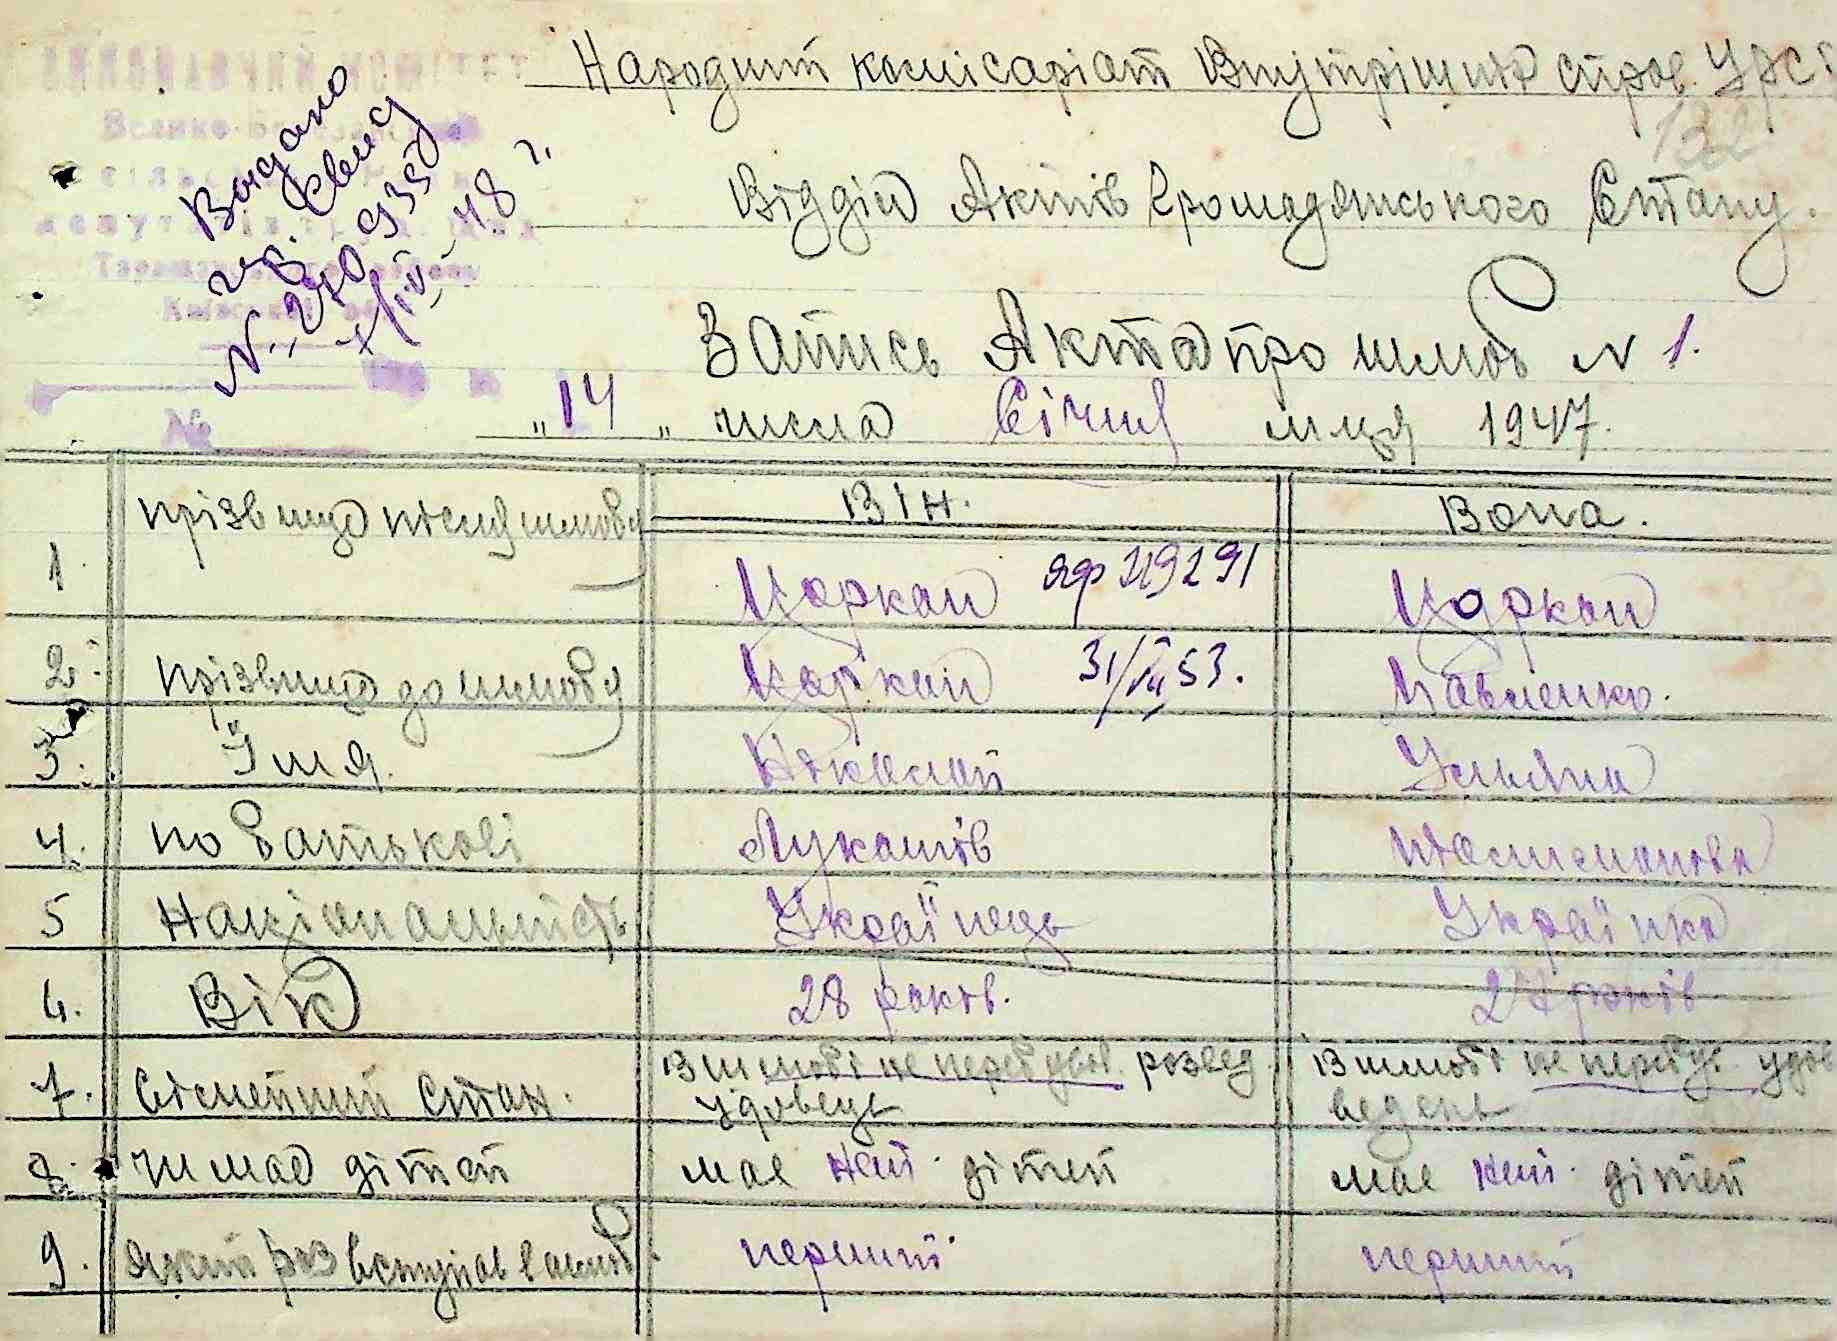 ВИКОНАВЧИЙ КОМІТЕТ
Київської
№
Видано
свид
N 270935
7/IV-48 г.
Народний комісаріат Внутрішніх справ УРСР
132
Відділ Актів Громадянського Стану.
Запись Акта про шлюб N 1.
"14" числа Січня м-ця 1947.
Він. Вона.
1 прізвище після шлюбу Царкан яф 119291 Царкан
2. прізвище до шлюбу Царкан 31/VII 53. Павленко.
3. Імя. Николай Ульяна
4. по Батькові Лукашів
5 Національність Українець Українка
6. Вік 28 років. 27 років
7. Сімейний Стан. В шлюбі не перебував. розвед. В шлюбі не перебув. удов
удовець ведена
8. чи має дітей має нет. дітей має нет. дітей
9. Який раз вступає в шлюб. перший перший